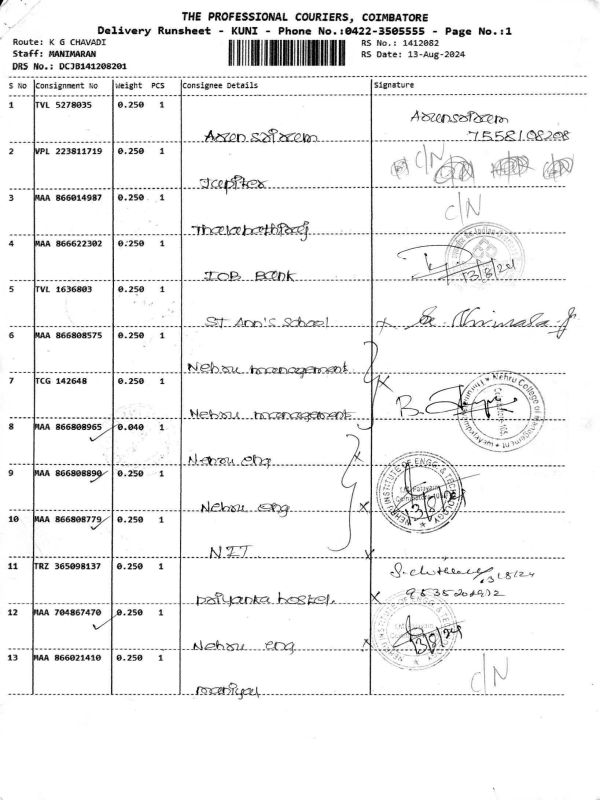 THE PROFESSIONAL COURIERS, COIMBATORE
Delivery Runsheet - KUNI - Phone No.:0422-3505555 - Page No.:1
Route: K G CHAVADI RS No.: 1412082
Staff: MANIMARAN RS Date: 13-Aug-2024
DRS No.: DCJB141208201
S No Consignment No Weight PCS Consignee Details Signature
1 TVL 5278035 0.250 1
7558108208
2 VPL 223811719 0.250 1
C/N
Jupiter
3 MAA 866014987 0.250 1
C/N
4 MAA 866622302 0.250 1
IOB BANK 13/8/24
5 TVL 1636803 0.250 1
ST Ann's School
6 MAA 866808575 0.250 1
Nehru management
7 TCG 142648 0.250 1
Nehru management
8 MAA 866808965 0.040 1
Nehru eng
9 MAA 866808890 0.250 1
Nehru eng 13/8/24
10 MAA 866808779 0.250 1
NIT
11 TRZ 365098137 0.250 1
13/8/24
priyanka hostel.
12 MAA 704867470 0.250 1
Nehru eng 13/8/24
13 MAA 866021410 0.250 1
C/N